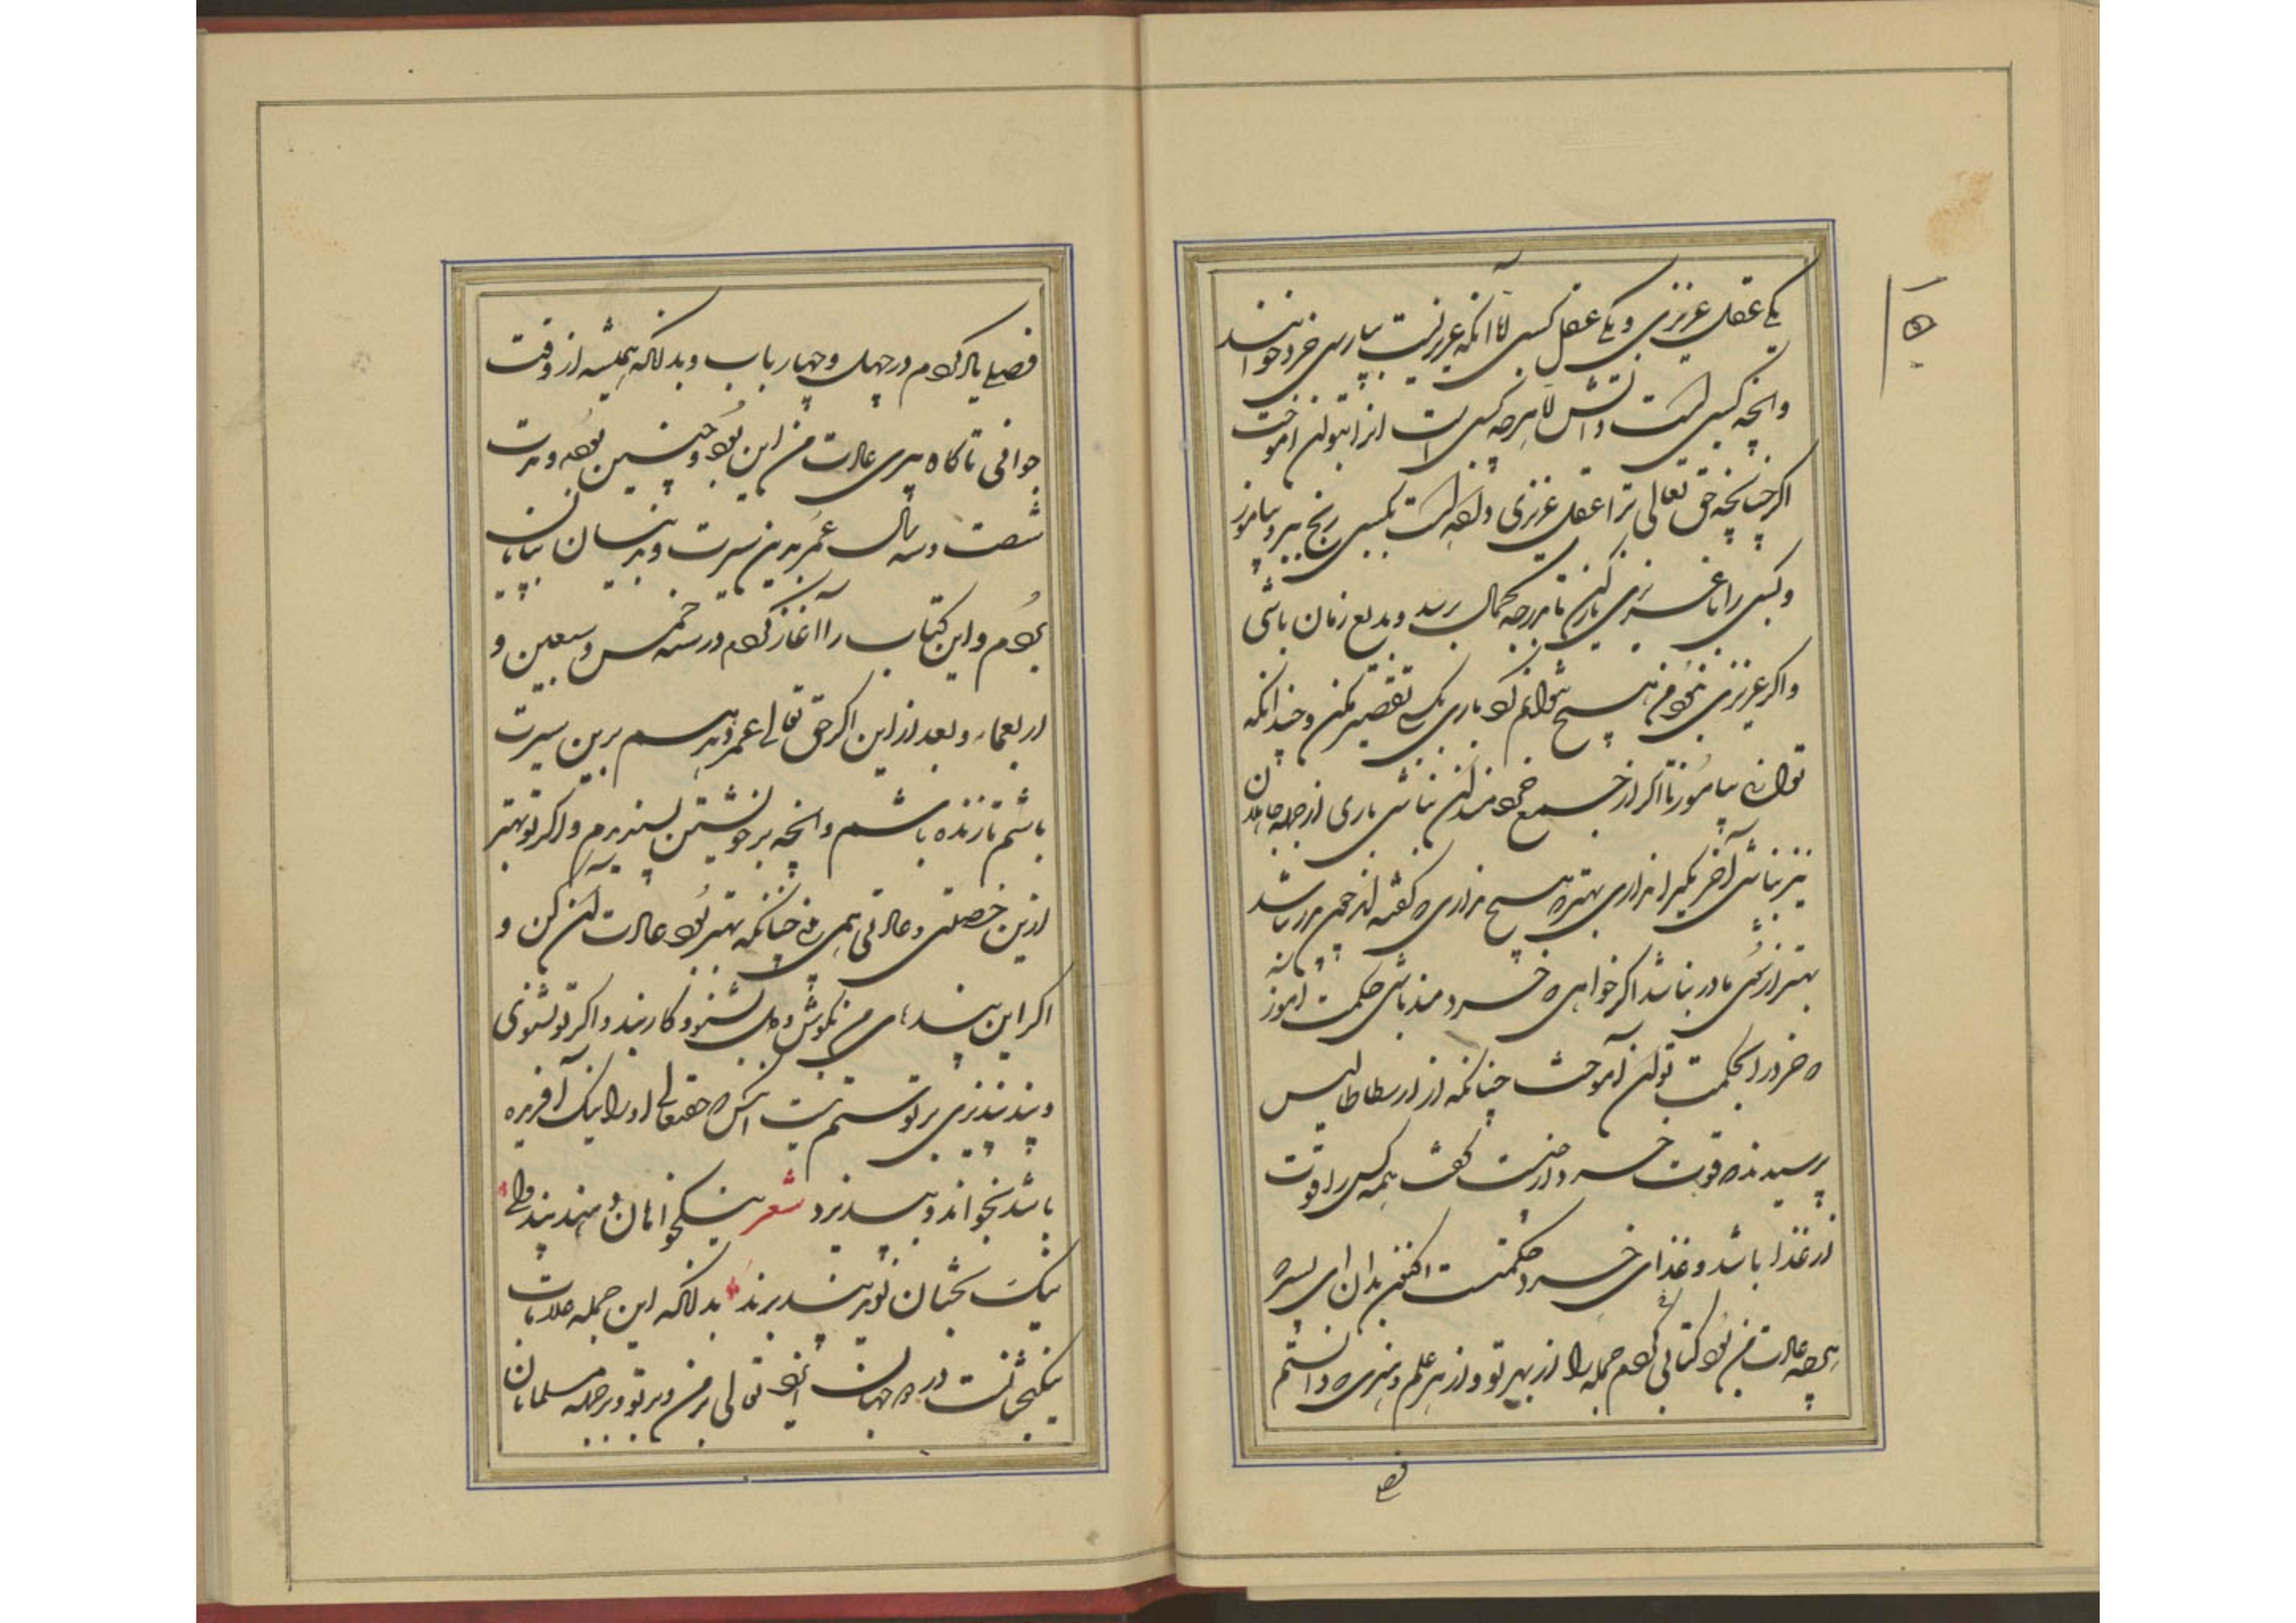 یکی عقل غریزی و یکی عقل کسبی اما آنکه غریزیست بپارسی خرد خوانند
وانچه کسبی است دانش اما هرچه کسبی است انرا بتوان اموخت
اکر چنانچه حق تعالی ترا عقل غریزی داده است بکسبی رنج ببر و بیاموز
و کسبی را با غریزی یار کن تا بدرجه کمال برسد و بدیع زمان باشی
و اکر غریزی نبود من هیچ نتوانم کرد باری بکسبی تقصیر مکن و چندانکه
توانی بیاموز تا اکر از جمع خردمندان نباشی باری از جمله جاهلان
نیز نباشی آخر یکی را نداری بهتر که هیچ نداری که کفته اند چون پدر نباشد
بهتر از شوی مادر نباشد اکر خواهی که خردمند باشی حکمت اموز
که خرد را بحکمت توان آموخت چنانکه از ارسطاطالیس
پرسیدند که قوت خرد از چیست کفت همه کس را قوت
از غذا باشد و غذای خرد حکمتست اکنون بدان ای پسر که
هرچه عادت من بود کتابی کردم جمله را از بهر تو و از هر علم و هنری که دانستم
فصلی
۱۵۰
فصلی یاد کردم در چهل و چهار باب و بدانکه همیشه از وقت
جوانی تا کاه پیری عادت من این بود و چنین بوده و مدت
شصت و سه سال عمر بدین سیرت و بدینسان بپایان
بردم و این کتاب را آغاز کردم در سنه خمس و سبعین و
اربعمایه و بعد ازین اکر حق تعالی عمر دهد هم برین سیرت
باشم تا زنده باشم وانچه بر خویشتن پسندیدم و اکر تو بهتر
ازین خصلتی و عادتی همی بینی چنانکه بهتر بود عادت آن کن و
اکر این پندهای من بکوش دل بشنو و کار بند و اکر تو نشنوی
و پند نپذیری بر تو ستم نیست انکس که حقتعالی او را نیک آفریده
باشد بخواند و بپذیرد شعر نیکخواهان دهند پند ولی
نیک بختان بوند پند پذیر بدانکه این جمله علامات
نیکبختانست در دو جهان ایزد تعالی بر من و بر تو و بر جمله مسلمانان